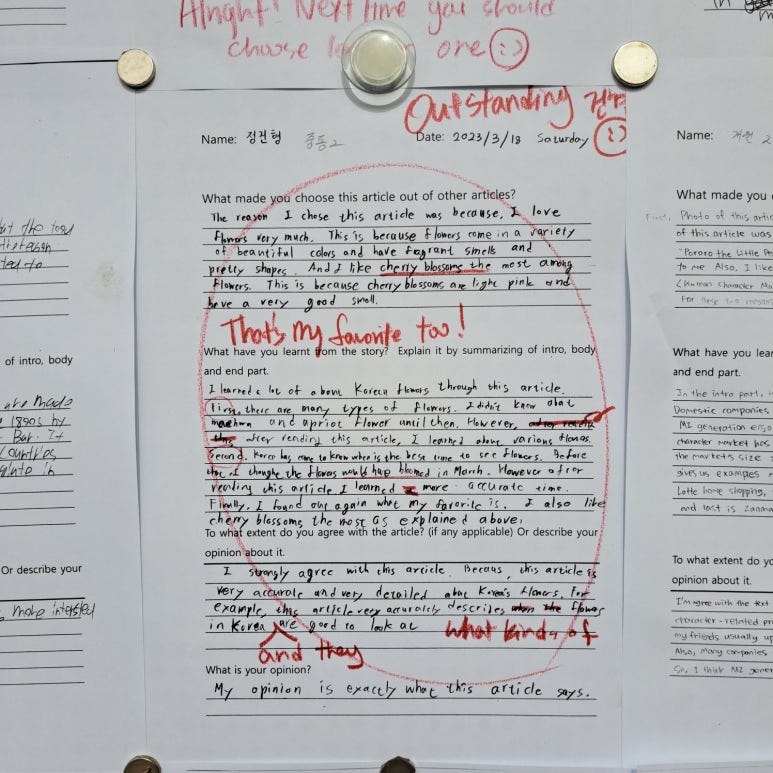 Alright! Next time you should
choose one :)
Outstanding
Name: 정건형 중등2
Date: 2023/3/18 Saturday :)
What made you choose this article out of other articles?
The reason I chose this article was because, I love
flowers very much. This is because flowers come in a variety
of beautiful colors and have fragrant smells and
pretty shapes. And I like cherry blossoms the most among
flowers. This is because cherry blossoms are light pink and
have a very good smell.
That's my favorite too!
What have you learnt from the story? Explain it by summarizing of intro, body
and end part.
I learned a lot of about Korean flowers through this article.
first, there are many types of flowers. I didn't know about
and apricot flower until then. However,
after reading this article, I learned about various flowers.
Second, Korea has come to know when is the best time to see flowers. Before
I thought the flowers would have bloomed in March. However after
reading this article I learned more accurate time.
Finally, I found out again what my favorite is. I also like
cherry blossoms the most as explained above.
To what extent do you agree with the article? (if any applicable) Or describe your
opinion about it.
I strongly agree with this article. Becaus, this article is
very accurate and very detailed about Korea's flowers. For
example, this article very accurately describes flowers
in Korea are good to look at
what kinds of
and they
What is your opinion?
My opinion is exactly what this article says.
but the
of intro, body
are made
1890s by
Or describe your
make interested
Name:
What made you
First, Photo of this artic
of this article was
"Pororo the Little Pe
to me. Also, I like
(human character Ma
For these two reason
What have you lear
and end part.
In the intro part, 
Domestic companies
MZ generation enjo
character market has
the markets size
gives us examples
Lotte home shopping,
and last is Zanma
To what extent do yo
opinion about it.
I'm agree with the text
character-related pr
my friends usually up
Also, many companies
So, I think MZ gener